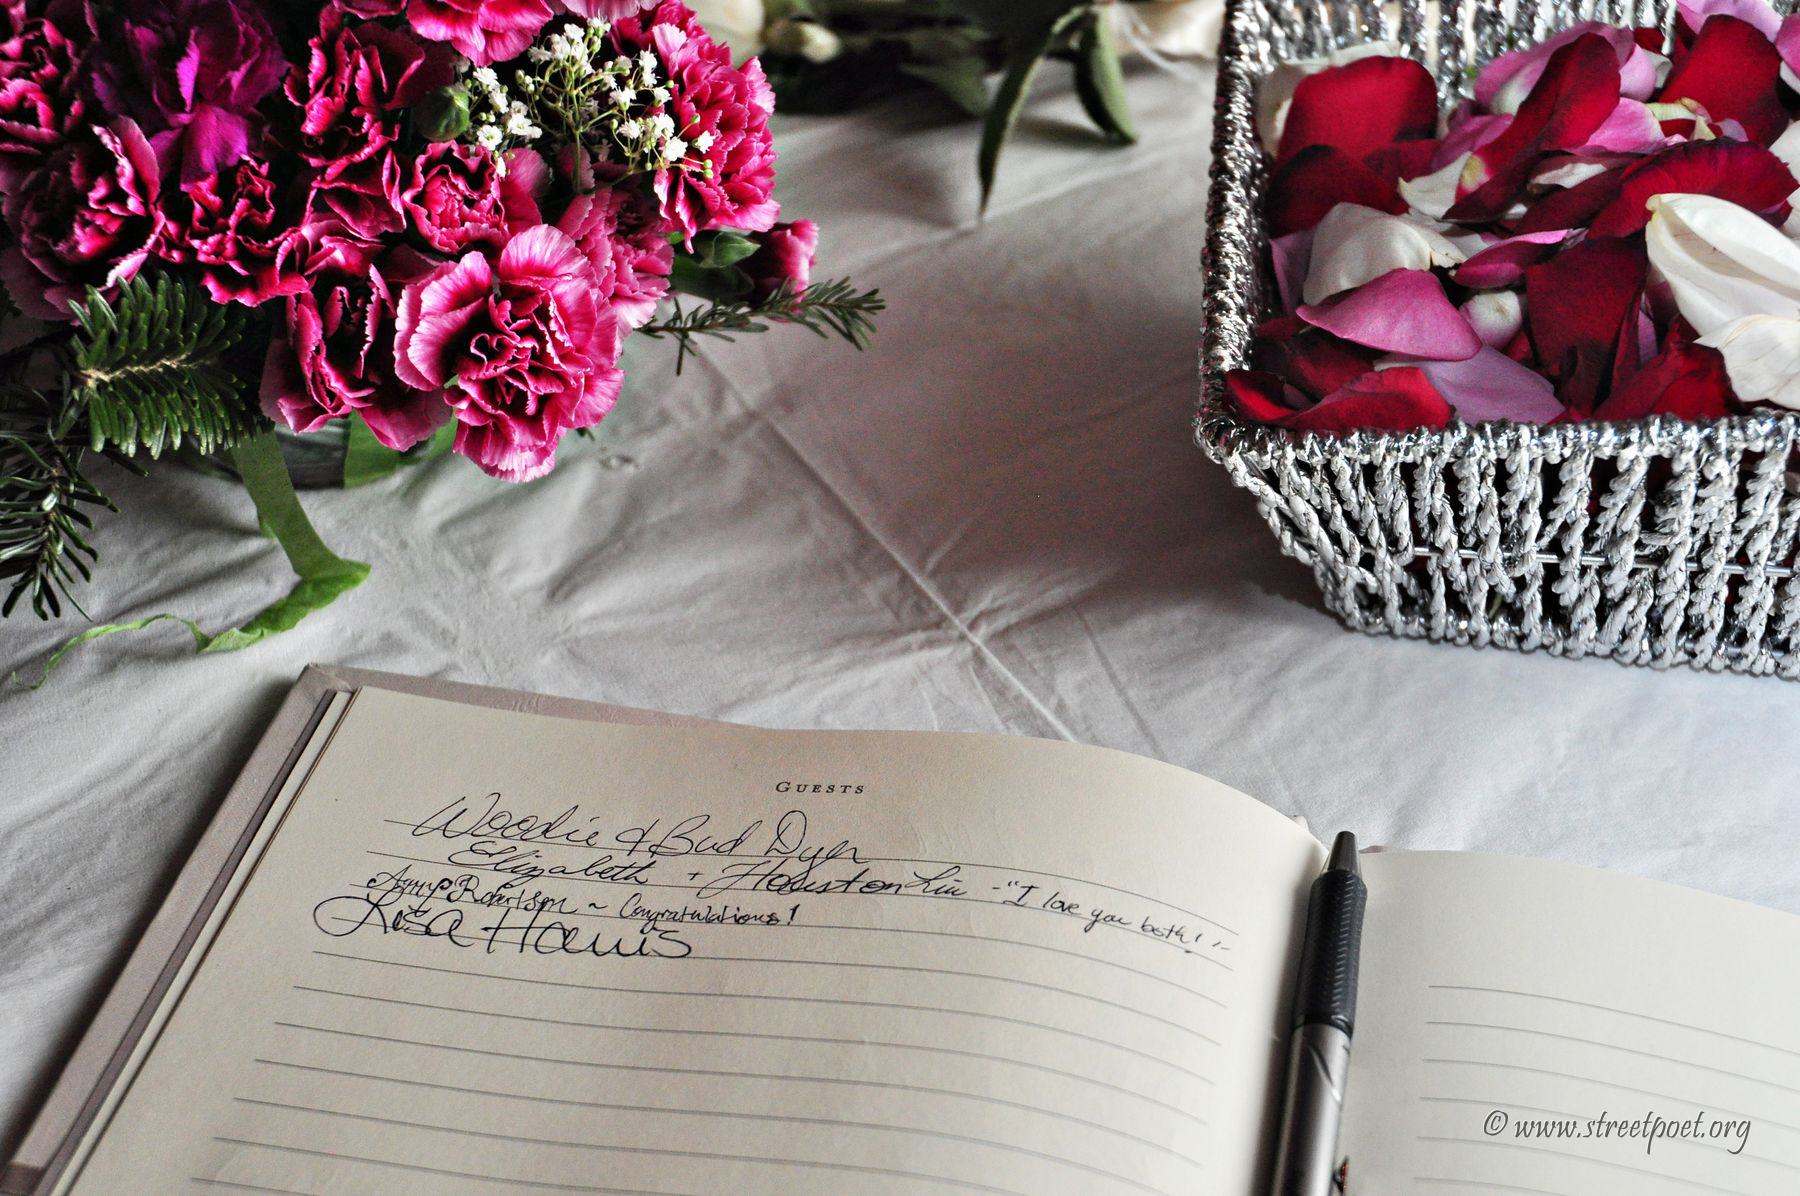 GUESTS
Woodie & Bud Dyer
Elizabeth + Houston Liu - "I love you both!"-
Amy Robertson ~ Congratulations!
Lisa Harris
© www.streetpoet.org